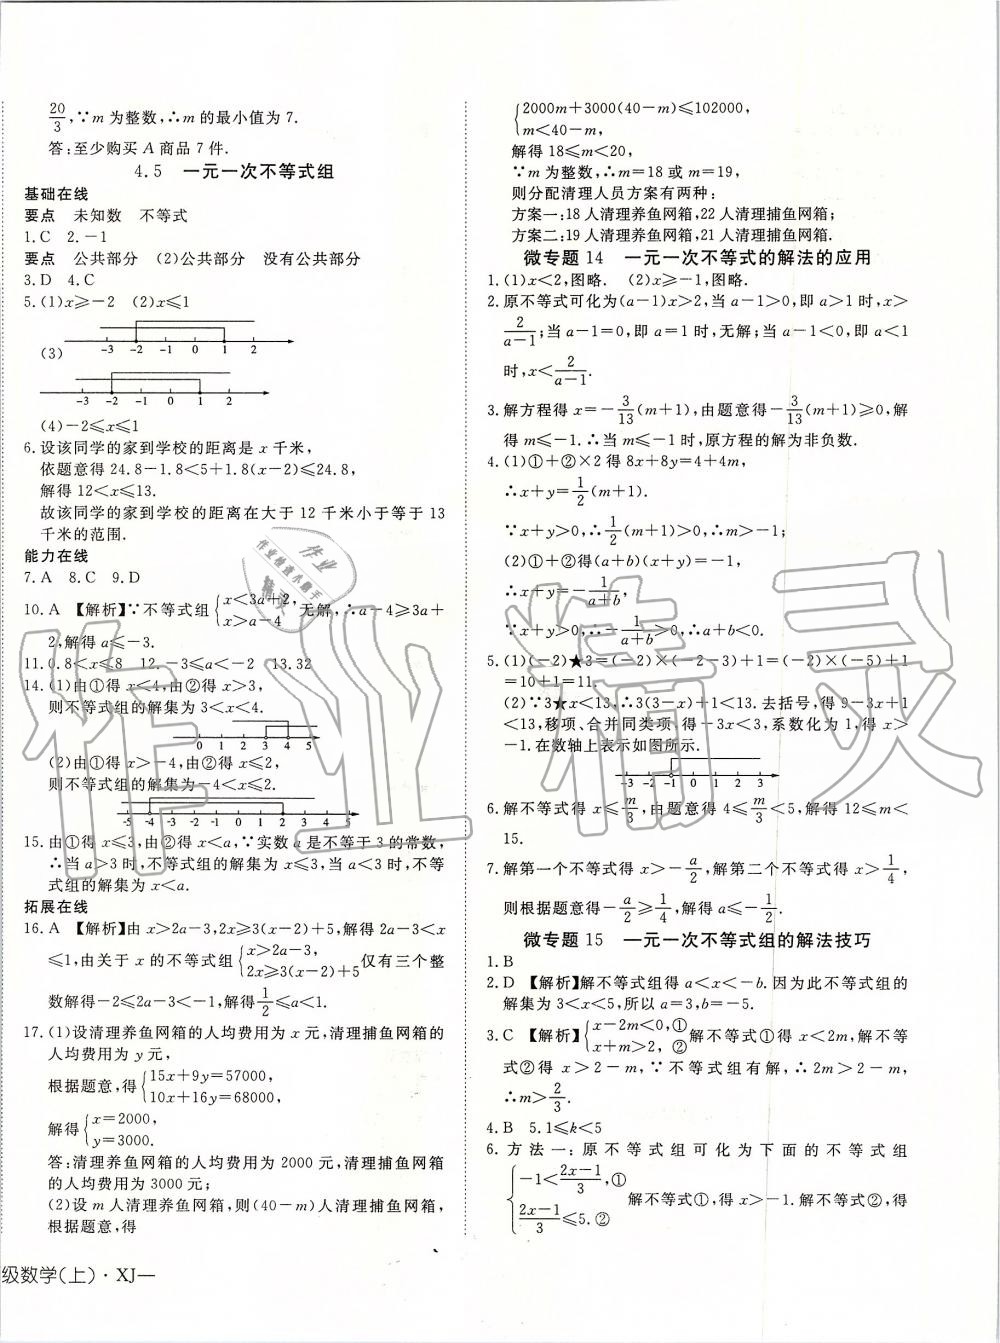 20/3,∵m 为整数,∴m 的最小值为 7.
答:至少购买 A 商品 7 件.
4.5 一元一次不等式组
基础在线
要点 未知数 不等式
1.C 2.-1
要点 公共部分 (2)公共部分 没有公共部分
3.D 4.C
5.(1)x≥-2 (2)x≤1
(3)
-3 -2 -1 0 1 2
-3 -2 -1 0 1 2
(4)-2≤x≤1
6.设该同学的家到学校的距离是 x 千米,
依题意得 24.8-1.8<5+1.8(x-2)≤24.8,
解得 12<x≤13.
故该同学的家到学校的距离在大于 12 千米小于等于 13
千米的范围.
能力在线
7.A 8.C 9.D
10.A 【解析】∵不等式组{x<3a+2, x>a-4 无解,∴a-4≥3a+
2,解得 a≤-3.
11.0.8<x≤8 12.-3≤a<-2 13.32
14.(1)由①得 x<4,由②得 x>3,
则不等式组的解集为 3<x<4.
0 1 2 3 4 5
(2)由①得 x>-4,由②得 x≤2,
则不等式组的解集为-4<x≤2.
-5 -4 -3 -2 -1 0 1 2 3 4 5
15.由①得 x≤3,由②得 x<a,∵实数 a 是不等于 3 的常数,
∴当 a>3 时,不等式组的解集为 x≤3,当 a<3 时,不等
式组的解集为 x<a.
拓展在线
16.A 【解析】由 x>2a-3,2x≥3(x-2)+5,解得 2a-3<x
≤1,由关于 x 的不等式组{x>2a-3, 2x≥3(x-2)+5 仅有三个整
数解得-2≤2a-3<-1,解得1/2≤a<1.
17.(1)设清理养鱼网箱的人均费用为 x 元,清理捕鱼网箱的
人均费用为 y 元,
根据题意,得{15x+9y=57000, 10x+16y=68000,
解得{x=2000, y=3000.
答:清理养鱼网箱的人均费用为 2000 元,清理捕鱼网箱
的人均费用为 3000 元;
(2)设 m 人清理养鱼网箱,则(40-m)人清理捕鱼网箱,
根据题意,得
{2000m+3000(40-m)≤102000, m<40-m,
解得 18≤m<20,
∵m 为整数,∴m=18 或 m=19,
则分配清理人员方案有两种:
方案一:18 人清理养鱼网箱,22 人清理捕鱼网箱;
方案二:19 人清理养鱼网箱,21 人清理捕鱼网箱.
微专题 14 一元一次不等式的解法的应用
1.(1)x<2,图略. (2)x≥-1,图略.
2.原不等式可化为(a-1)x>2,当 a-1>0,即 a>1 时,x>
2/(a-1);当 a-1=0,即 a=1 时,无解;当 a-1<0,即 a<1
时,x<2/(a-1).
3.解方程得 x=-3/13(m+1),由题意得-3/13(m+1)≥0,解
得 m≤-1.∴当 m≤-1 时,原方程的解为非负数.
4.(1)①+②×2 得 8x+8y=4+4m,
∴x+y=1/2(m+1).
∵x+y>0,∴1/2(m+1)>0,∴m>-1;
(2)①+②得(a+b)(x+y)=-1,
∴x+y=-1/(a+b),
∵x+y>0,∴-1/(a+b)>0,∴a+b<0.
5.(1)(-2)★3=(-2)×(-2-3)+1=(-2)×(-5)+1
=10+1=11.
(2)∵3★x<13,∴3(3-x)+1<13.去括号,得 9-3x+1
<13,移项、合并同类项 得-3x<3,系数化为 1,得 x>
-1.在数轴上表示如图所示.
-3 -2 -1 0 1 2 3
6.解不等式得 x≤m/3,由题意得 4≤m/3<5,解得 12≤m<
15.
7.解第一个不等式得 x>-a/2,解第二个不等式得 x>1/4,
则根据题意得-a/2≥1/4,解得 a≤-1/2.
微专题 15 一元一次不等式组的解法技巧
1.B
2.D 【解析】解不等式组得 a<x<-b.因为此不等式组的
解集为 3<x<5,所以 a=3,b=-5.
3.C 【解析】{x-2m<0,① x+m>2, ② 解不等式①得 x<2m,解不等
式②得 x>2-m,∵不等式组有解,∴2m>2-m,
∴m>2/3.
4.B 5.1≤k<5
6.方法一:原不等式组可化为下面的不等式组
{-1<(2x-1)/3,① (2x-1)/3≤5.② 解不等式①,得 x>-1.解不等式②,得
级数学(上)·XJ—
作业精灵